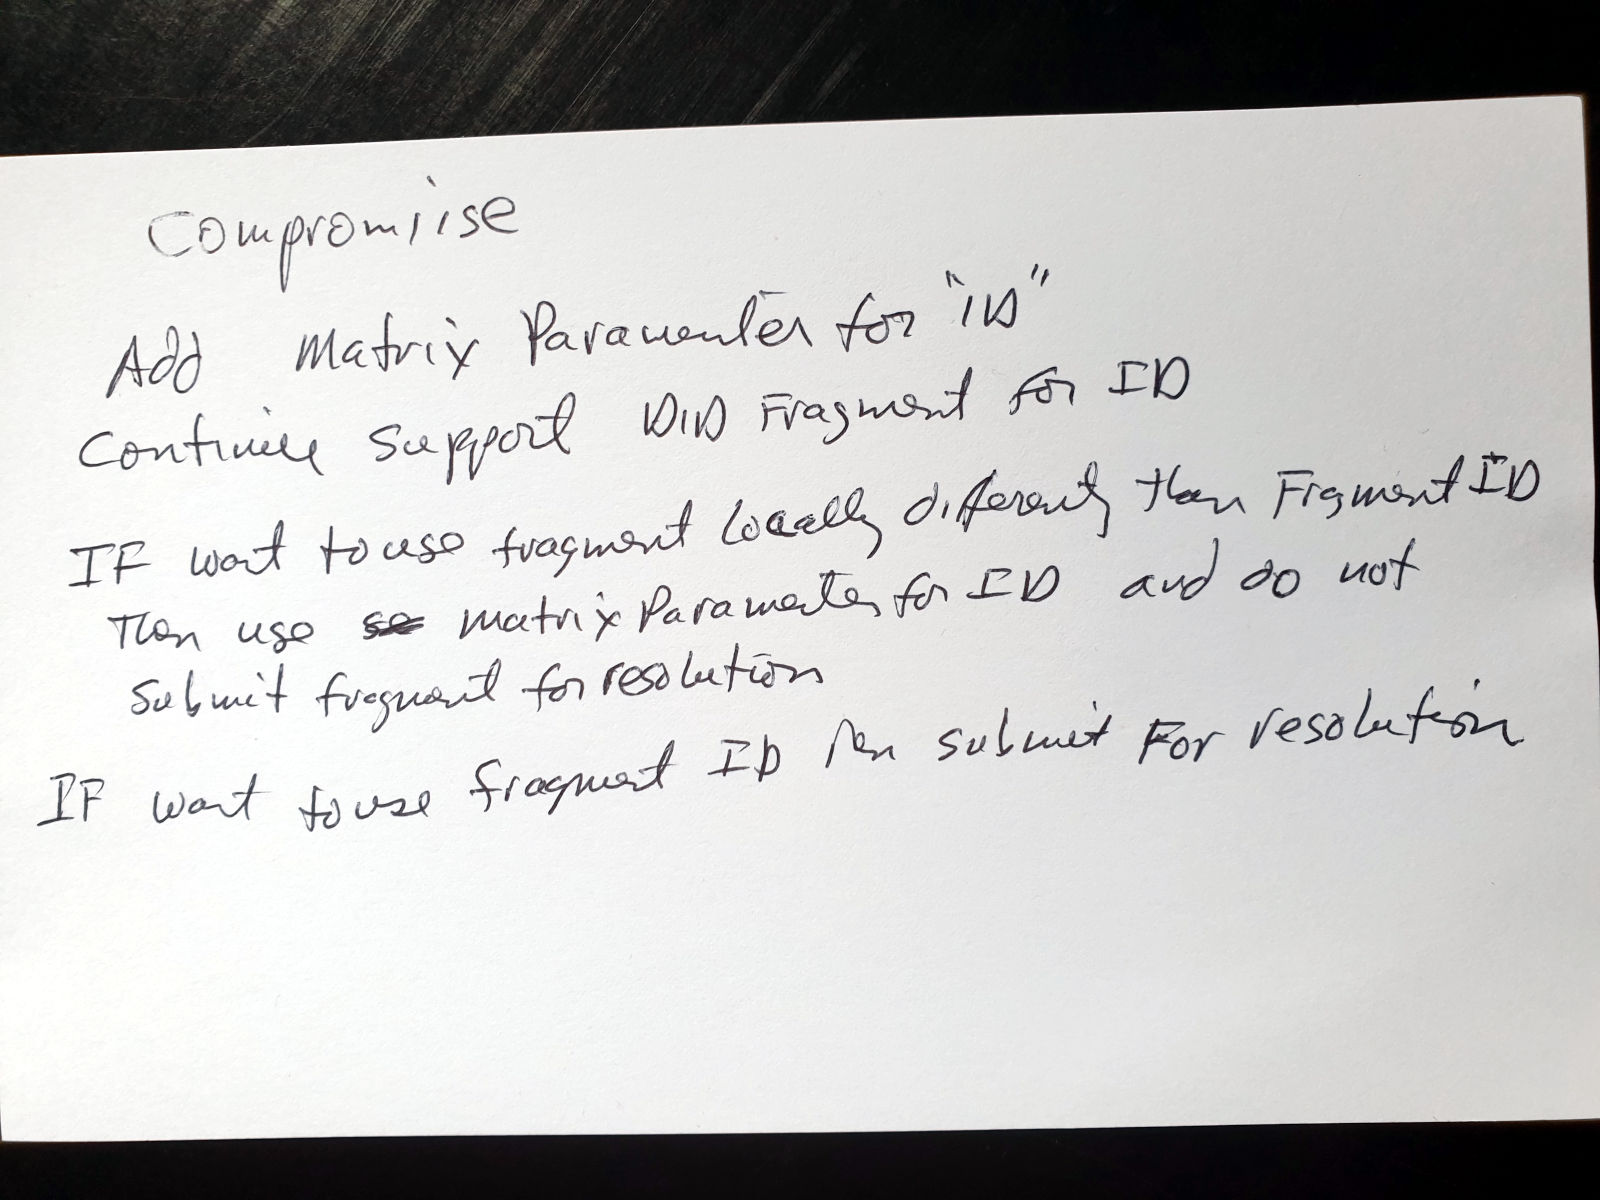 Compromiise
Add Matrix Paramenter for "ID"
Continue Support DID Fragment for ID
IF want to use fragment locally differently than Frgment ID
Then use matrix Paramenter for ID and do not
Submit fragment for resolution
IF want to use fragment ID then submit For resolution